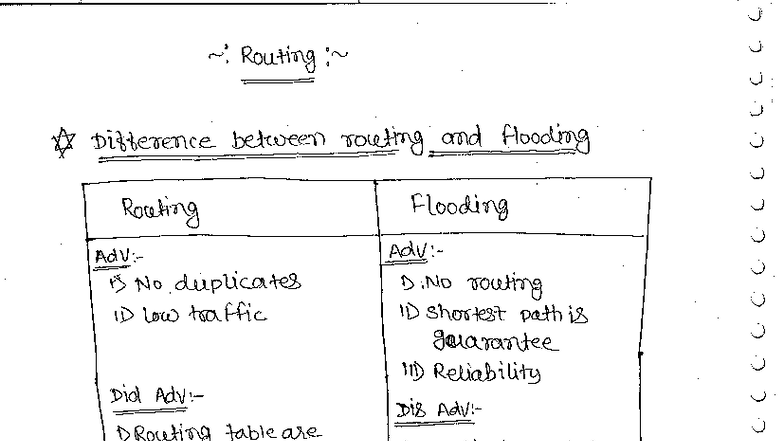 ~: Routing :~
☆ Difference between routing and flooding
Routing
Adv:-
I) No duplicates
II) low traffic
Did Adv:-
I) Routing table are
Flooding
Adv:-
I) No routing
II) Shortest path is
guarantee
III) Reliability
Dis Adv:-